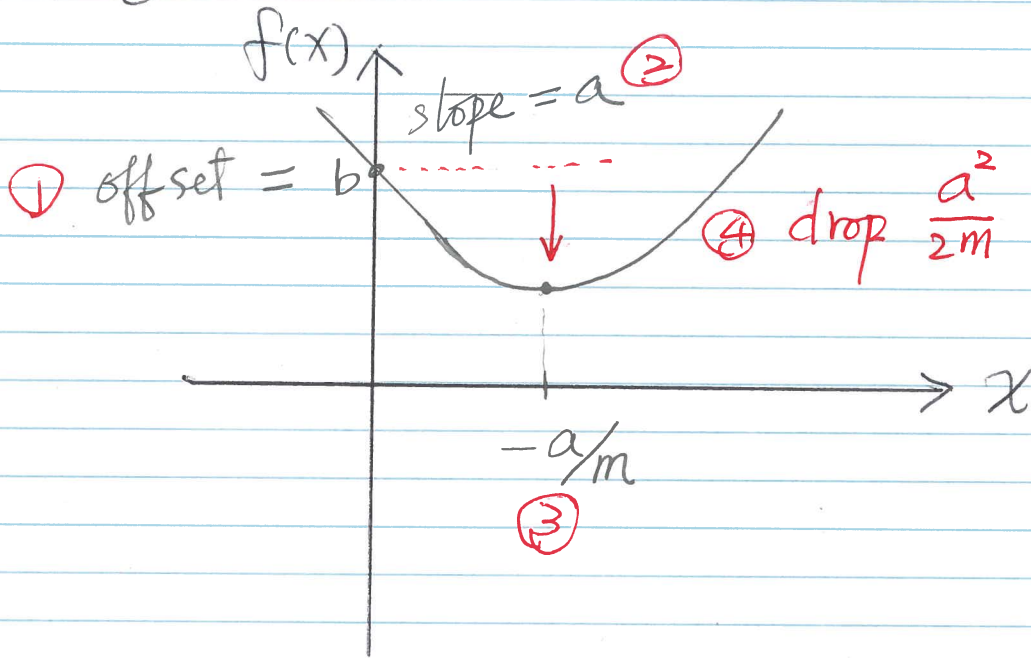 f(x)
slope = a ②
① offset = b
④ drop a²/2m
x
-a/m
③